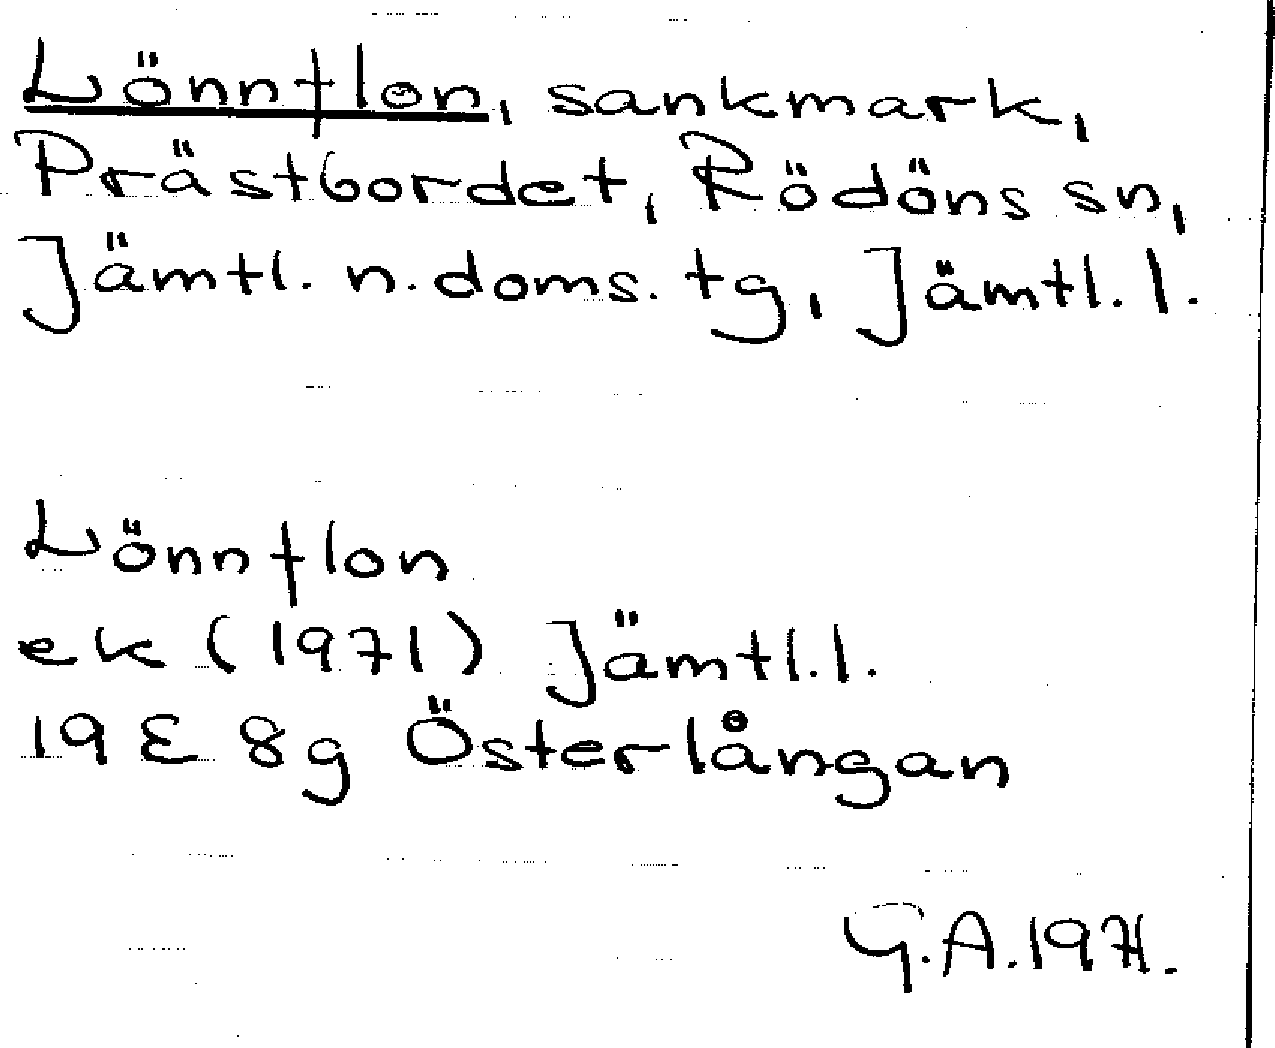 Lönnflon, sankmark,
Prästbordet, Rödöns sn,
Jämtl. n. doms. tg, Jämtl. l.
Lönnflon
ek (1971) Jämtl. l.
19 E 8g Österlångan
G. A. 1971.